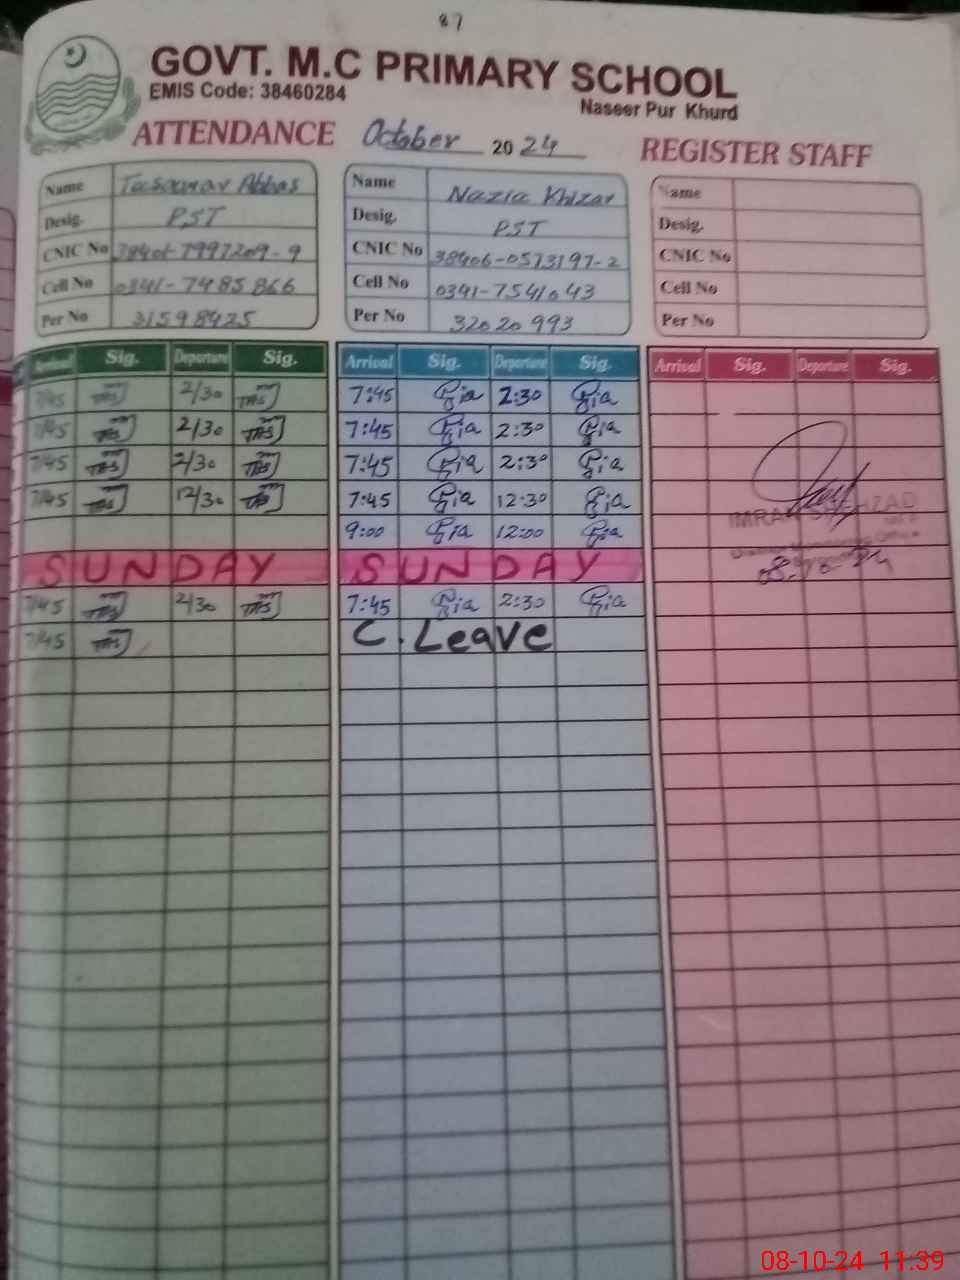 87
GOVT. M.C PRIMARY SCHOOL
EMIS Code: 38460284
Naseer Pur Khurd
ATTENDANCE October 2024 REGISTER STAFF
Name Tasawar Abbas
Desig. PST
CNIC No 38401-7997209-9
Cell No 0341-7485866
Per No 31598425
Name Nazia Khizar
Desig. PST
CNIC No 38406-0573197-2
Cell No 0341-7541643
Per No 32020993
Name
Desig.
CNIC No
Cell No
Per No
Arrival Sig. Departure Sig. Arrival Sig. Departure Sig. Arrival Sig. Departure Sig.
7/45 2/30 7:45 2:30
7/45 2/30 7:45 2:30
7/45 2/30 7:45 2:30
7/45 12/30 7:45 12:30
9:00 12:00
SUNDAY SUNDAY
7/45 2/30 7:45 2:30
7/45 C. Leave
IMRAN SHEHZAD
08-10-24
08-10-24 11:39